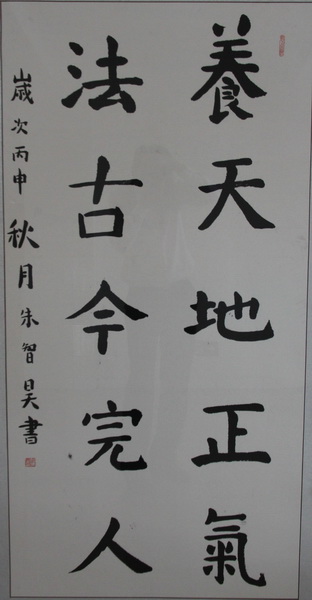 養天地正氣
法古今完人
歲次丙申秋月朱智昊書